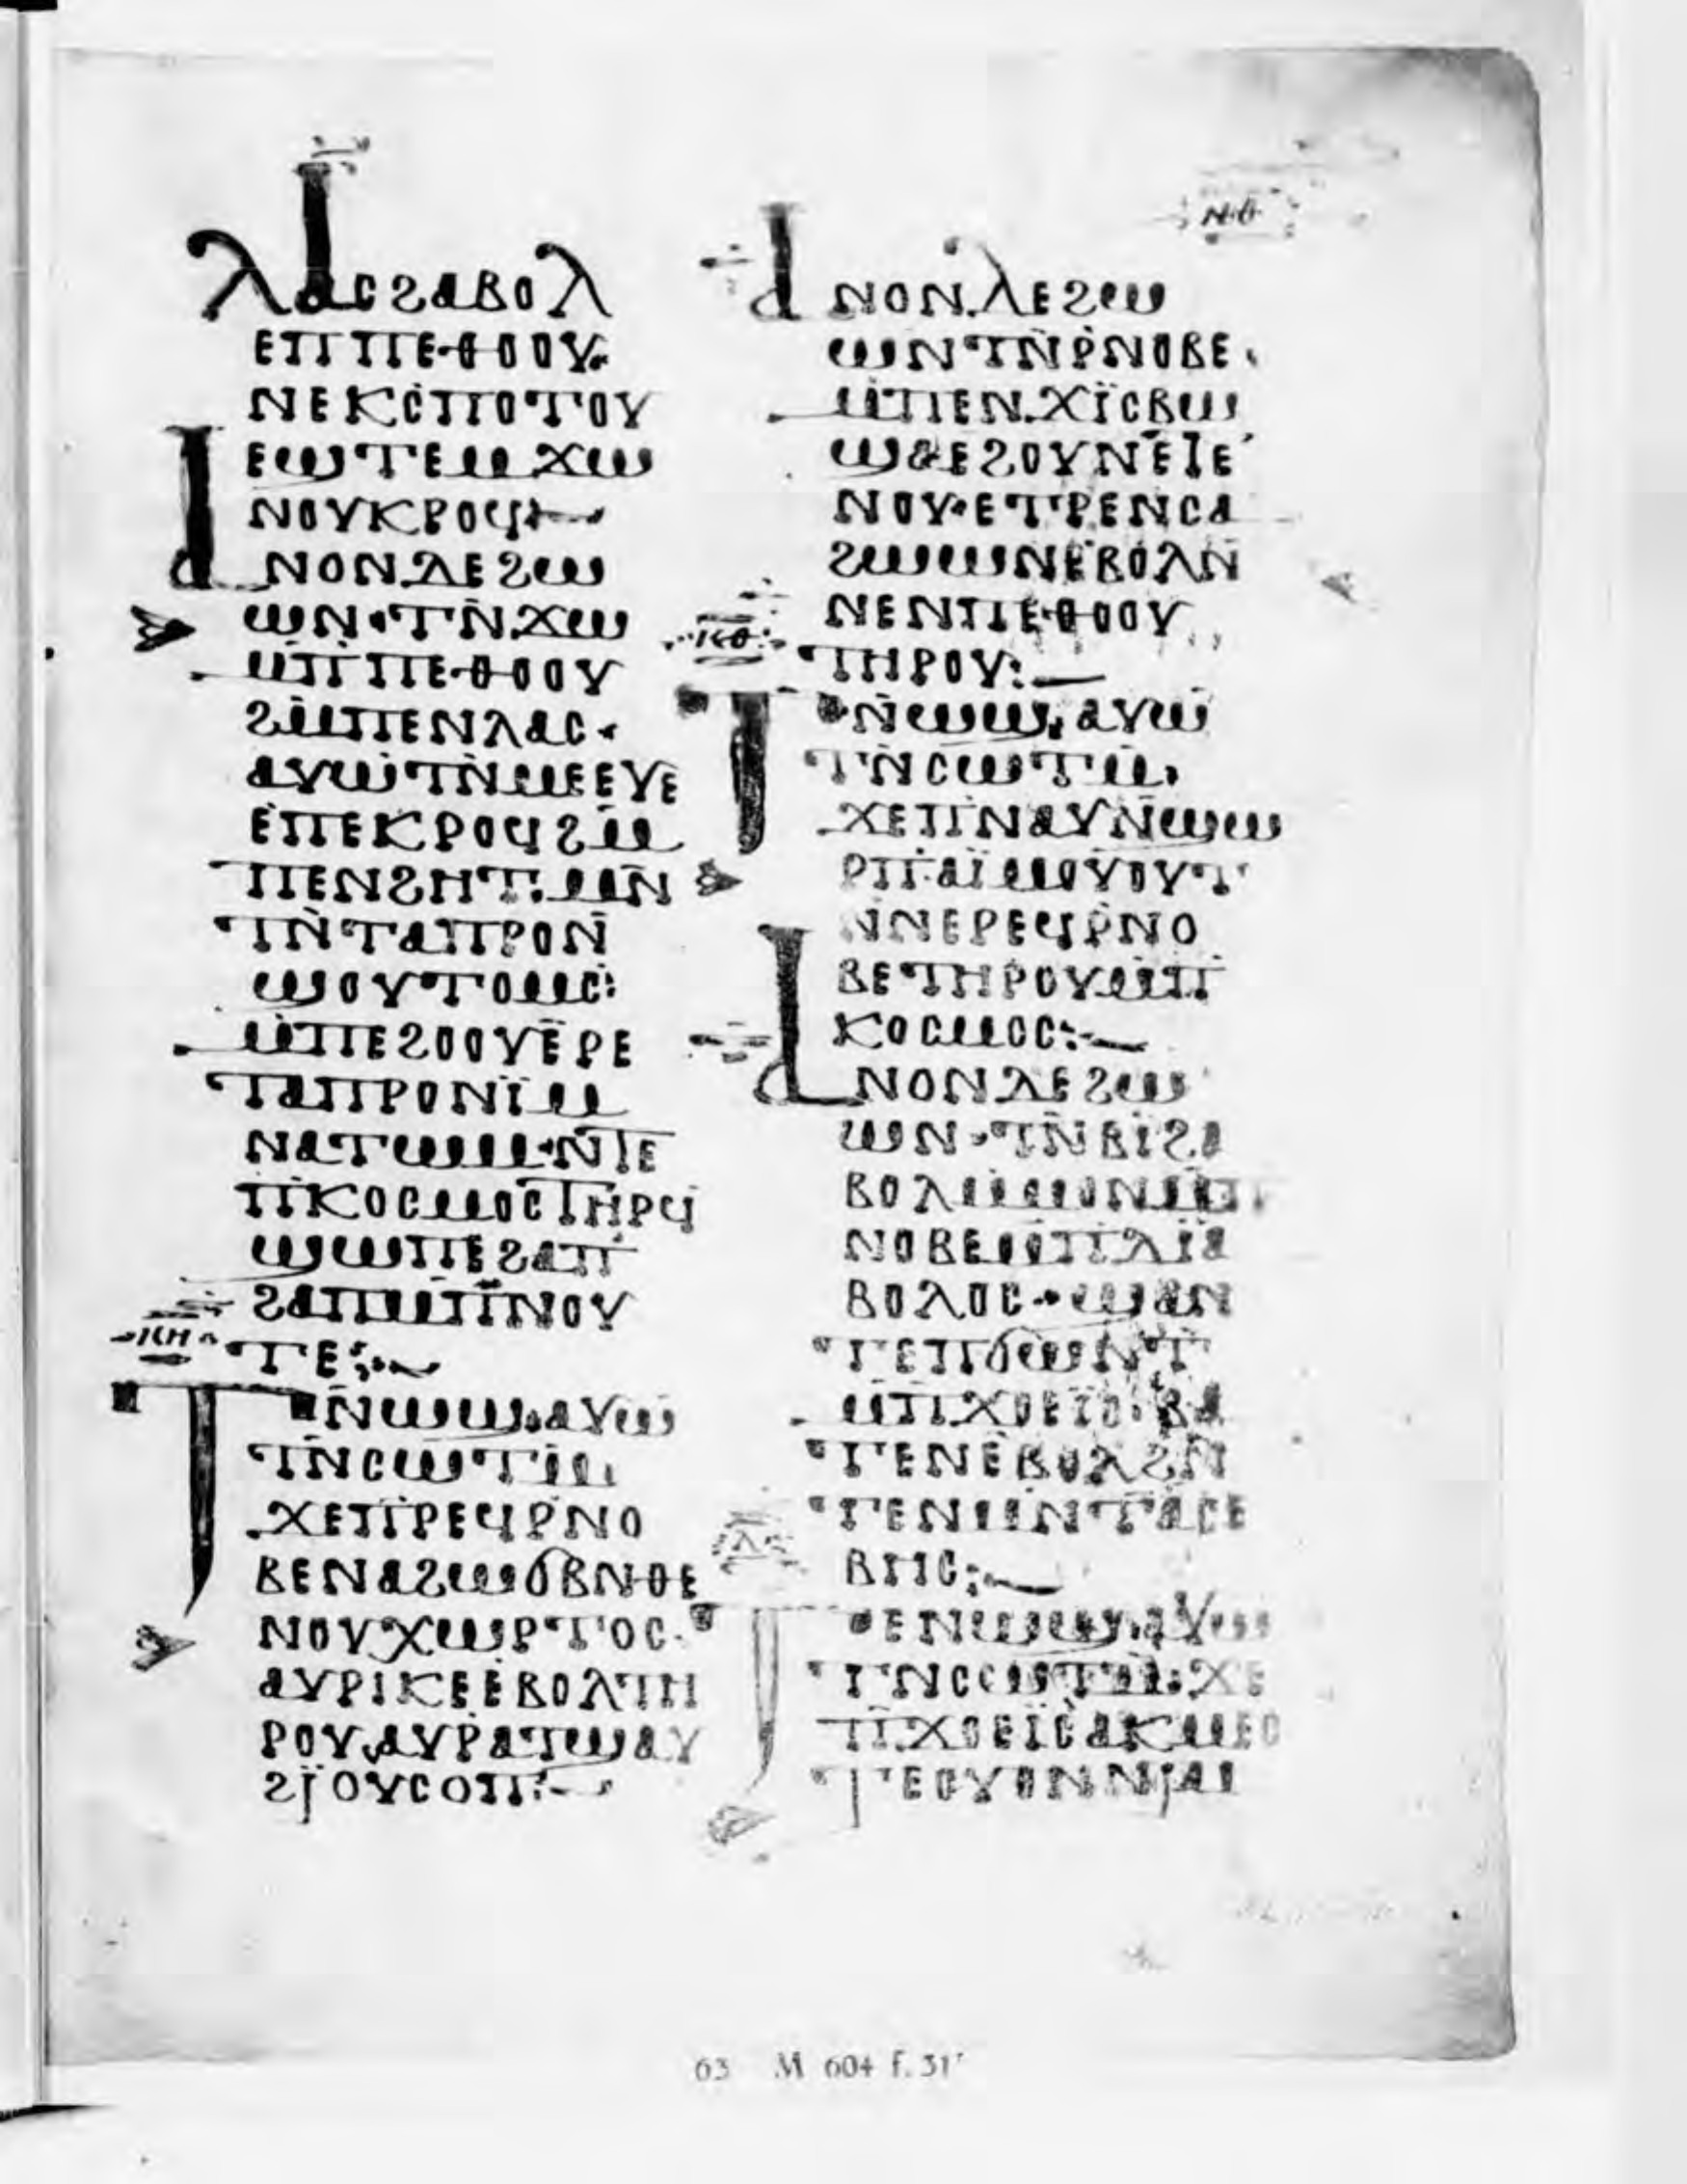 ⲛⲑ
ⲗⲁⲥϩⲁⲃⲟⲗ
ⲉⲡⲡⲉⲑⲟⲟⲩ·
ⲛⲉⲕⲥⲡⲟⲧⲟⲩ
ⲉϣⲧⲉⲙϫⲱ
ⲛⲟⲩⲕⲣⲟϥ
ⲁⲛⲟⲛⲇⲉϩⲱ
ⲱⲛ·ⲧⲛ̄ϫⲱ
ⲙ̄ⲡⲡⲉⲑⲟⲟⲩ
ϩⲙ̄ⲡⲉⲛⲗⲁⲥ·
ⲁⲩⲱⲧⲛ̄ⲙⲉⲉⲩⲉ
ⲉⲡⲉⲕⲣⲟϥϩⲙ̄
ⲡⲉⲛϩⲏⲧ:ⲙⲛ̄
ⲧⲛ̄ⲧⲁⲡⲣⲟⲛ̄
ϣⲟⲩⲧⲟⲙⲥ:
ⲙ̄ⲡⲉϩⲟⲟⲩⲉ̄ⲣⲉ
ⲧⲁⲡⲣⲟⲛⲓⲙ
ⲛⲁⲧⲱⲙ·ⲛ̄ⲧⲉ
ⲡⲕⲟⲥⲙⲟⲥⲧⲏⲣϥ
ϣⲱⲡⲉϩⲁⲡ
ϩⲁⲡⲙ̄ⲡⲛⲟⲩ
ⲕⲏ
ⲧⲉ:
ⲧⲛ̄ⲱϣ·ⲁⲩⲱ
ⲧⲛ̄ⲥⲱⲧⲙ̄
ϫⲉⲡⲣⲉϥⲣ̄ⲛⲟ
ⲃⲉⲛⲁϩⲱϭⲃⲛⲑⲉ
ⲛⲟⲩⲭⲱⲣⲧⲟⲥ·
ⲁⲩⲣⲓⲕⲉⲉⲃⲟⲗⲧⲏ
ⲣⲟⲩ·ⲁⲩⲣⲁⲧϣⲁⲩ
ϩⲓⲟⲩⲥⲟⲡ:
ⲁⲛⲟⲛ·ⲇⲉϩⲱ
ⲱⲛⲧⲛ̄ⲣ̄ⲛⲟⲃⲉ·
ⲙ̄ⲡⲉⲛ·ϫⲓ̈ⲥⲃⲱ
ϣⲁⲉϩⲟⲩⲛⲉⲧⲉ
ⲛⲟⲩ·ⲉⲧⲣⲉⲛⲥⲁ
ϩⲱⲱⲛⲉⲃⲟⲗⲛ̄
ⲛⲉⲛⲡⲉⲑⲟⲟⲩ
ⲕⲑ
ⲧⲏⲣⲟⲩ:
ⲧⲛ̄ⲱϣ·ⲁⲩⲱ
ⲧⲛ̄ⲥⲱⲧⲙ̄·
ϫⲉⲡⲛⲁⲩⲛ̄ϣⲱ
ⲣⲡ·ⲁⲓ̈ⲙⲟⲩⲟⲩⲧ
ⲛ̄ⲛⲉⲣⲉϥⲣ̄ⲛⲟ
ⲃⲉⲧⲏⲣⲟⲩⲙ̄ⲡ
ⲕⲟⲥⲙⲟⲥ:
ⲁⲛⲟⲛⲇⲉϩⲱ
ⲱⲛ·ⲧⲛ̄ⲃⲓ̈ϩⲁ
ⲃⲟⲗⲙ̄ⲙⲟⲛⲙ̄ⲡ
ⲛⲟⲃⲉⲙ̄ⲡⲇⲓ̈ⲁ
ⲃⲟⲗⲟⲥ·ϣⲁⲛ
ⲧⲉⲡϭⲱⲛⲧ
ⲙ̄ⲡϫⲟⲉⲓ̈ⲥ·ⲃⲁ
ⲧⲉⲛⲉⲃⲟⲗϩⲛ̄
ⲧⲉⲛⲙⲛ̄ⲧⲁⲥⲉ
ⲃⲏⲥ:
ⲧⲉⲛⲱϣ·ⲁⲩⲱ
ⲧⲛ̄ⲥⲱⲧⲙ̄:ϫⲉ
ⲡϫⲟⲉⲓ̈ⲥⲁⲕⲙⲉⲥ
ⲧⲉⲟⲩⲟⲛⲛⲓⲙ
63 M 604 f. 31ʳ